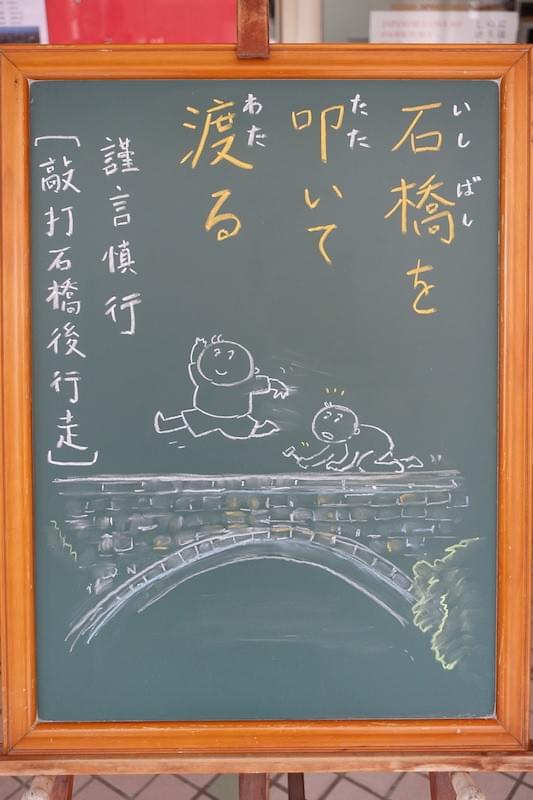 石橋を
いしばし
叩いて
たた
渡る
わた
謹言慎行
[敲打石橋後行走]